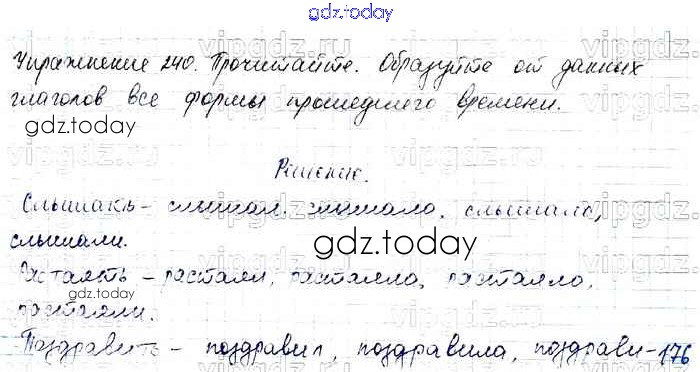 gdz.today
Упражнение 240. Прочитайте. Образуйте от данных
глаголов все формы прошедшего времени.
gdz.today
Решение.
Слышать – слышал, слышало, слышала,
слышали.
gdz.today
Растаять – растаял, растаяла, растаяло,
gdz.today
растаяли.
Поздравить – поздравил, поздравила, поздрави-176